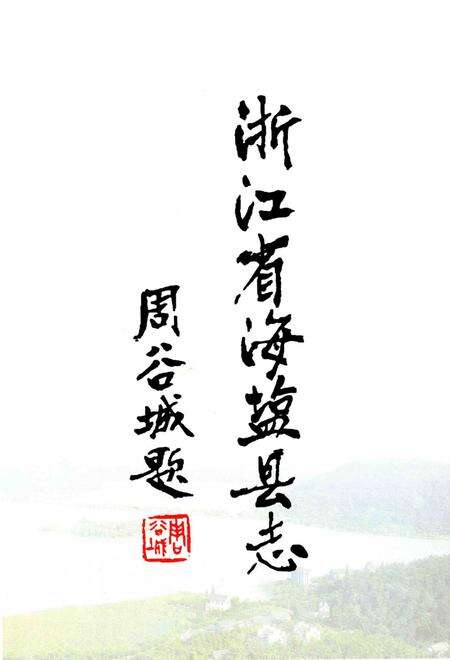 浙江省海盐县志
周谷城题
周谷城